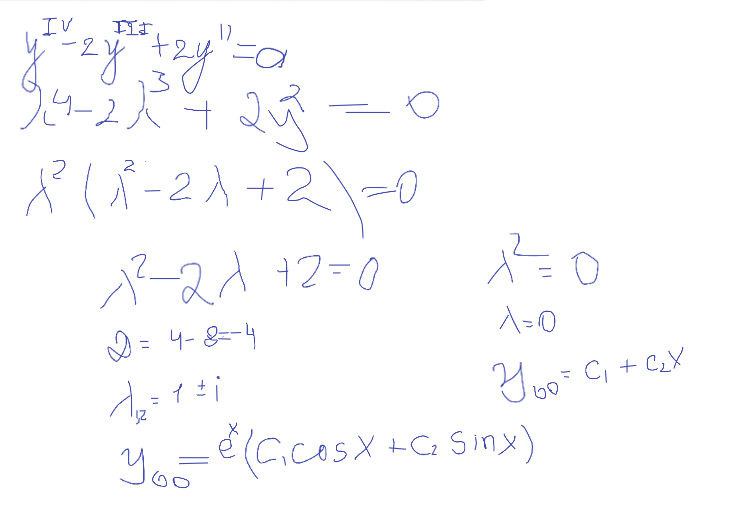 y^IV - 2y^III + 2y'' = 0
λ^4 - 2λ^3 + 2y^2 = 0
λ^2 (λ^2 - 2λ + 2) = 0
λ^2 - 2λ + 2 = 0
λ^2 = 0
D = 4 - 8 = -4
λ = 0
λ_1,2 = 1 ± i
y_00 = C_1 + C_2 x
y_00 = e^x (C_1 cos x + C_2 sin x)